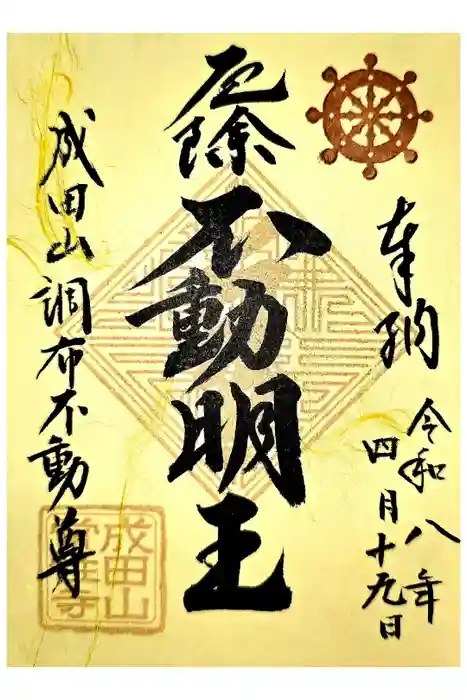 奉納
令和八年
四月十九日
厄除
不動明王
成田山 調布不動尊
成田山
常性寺